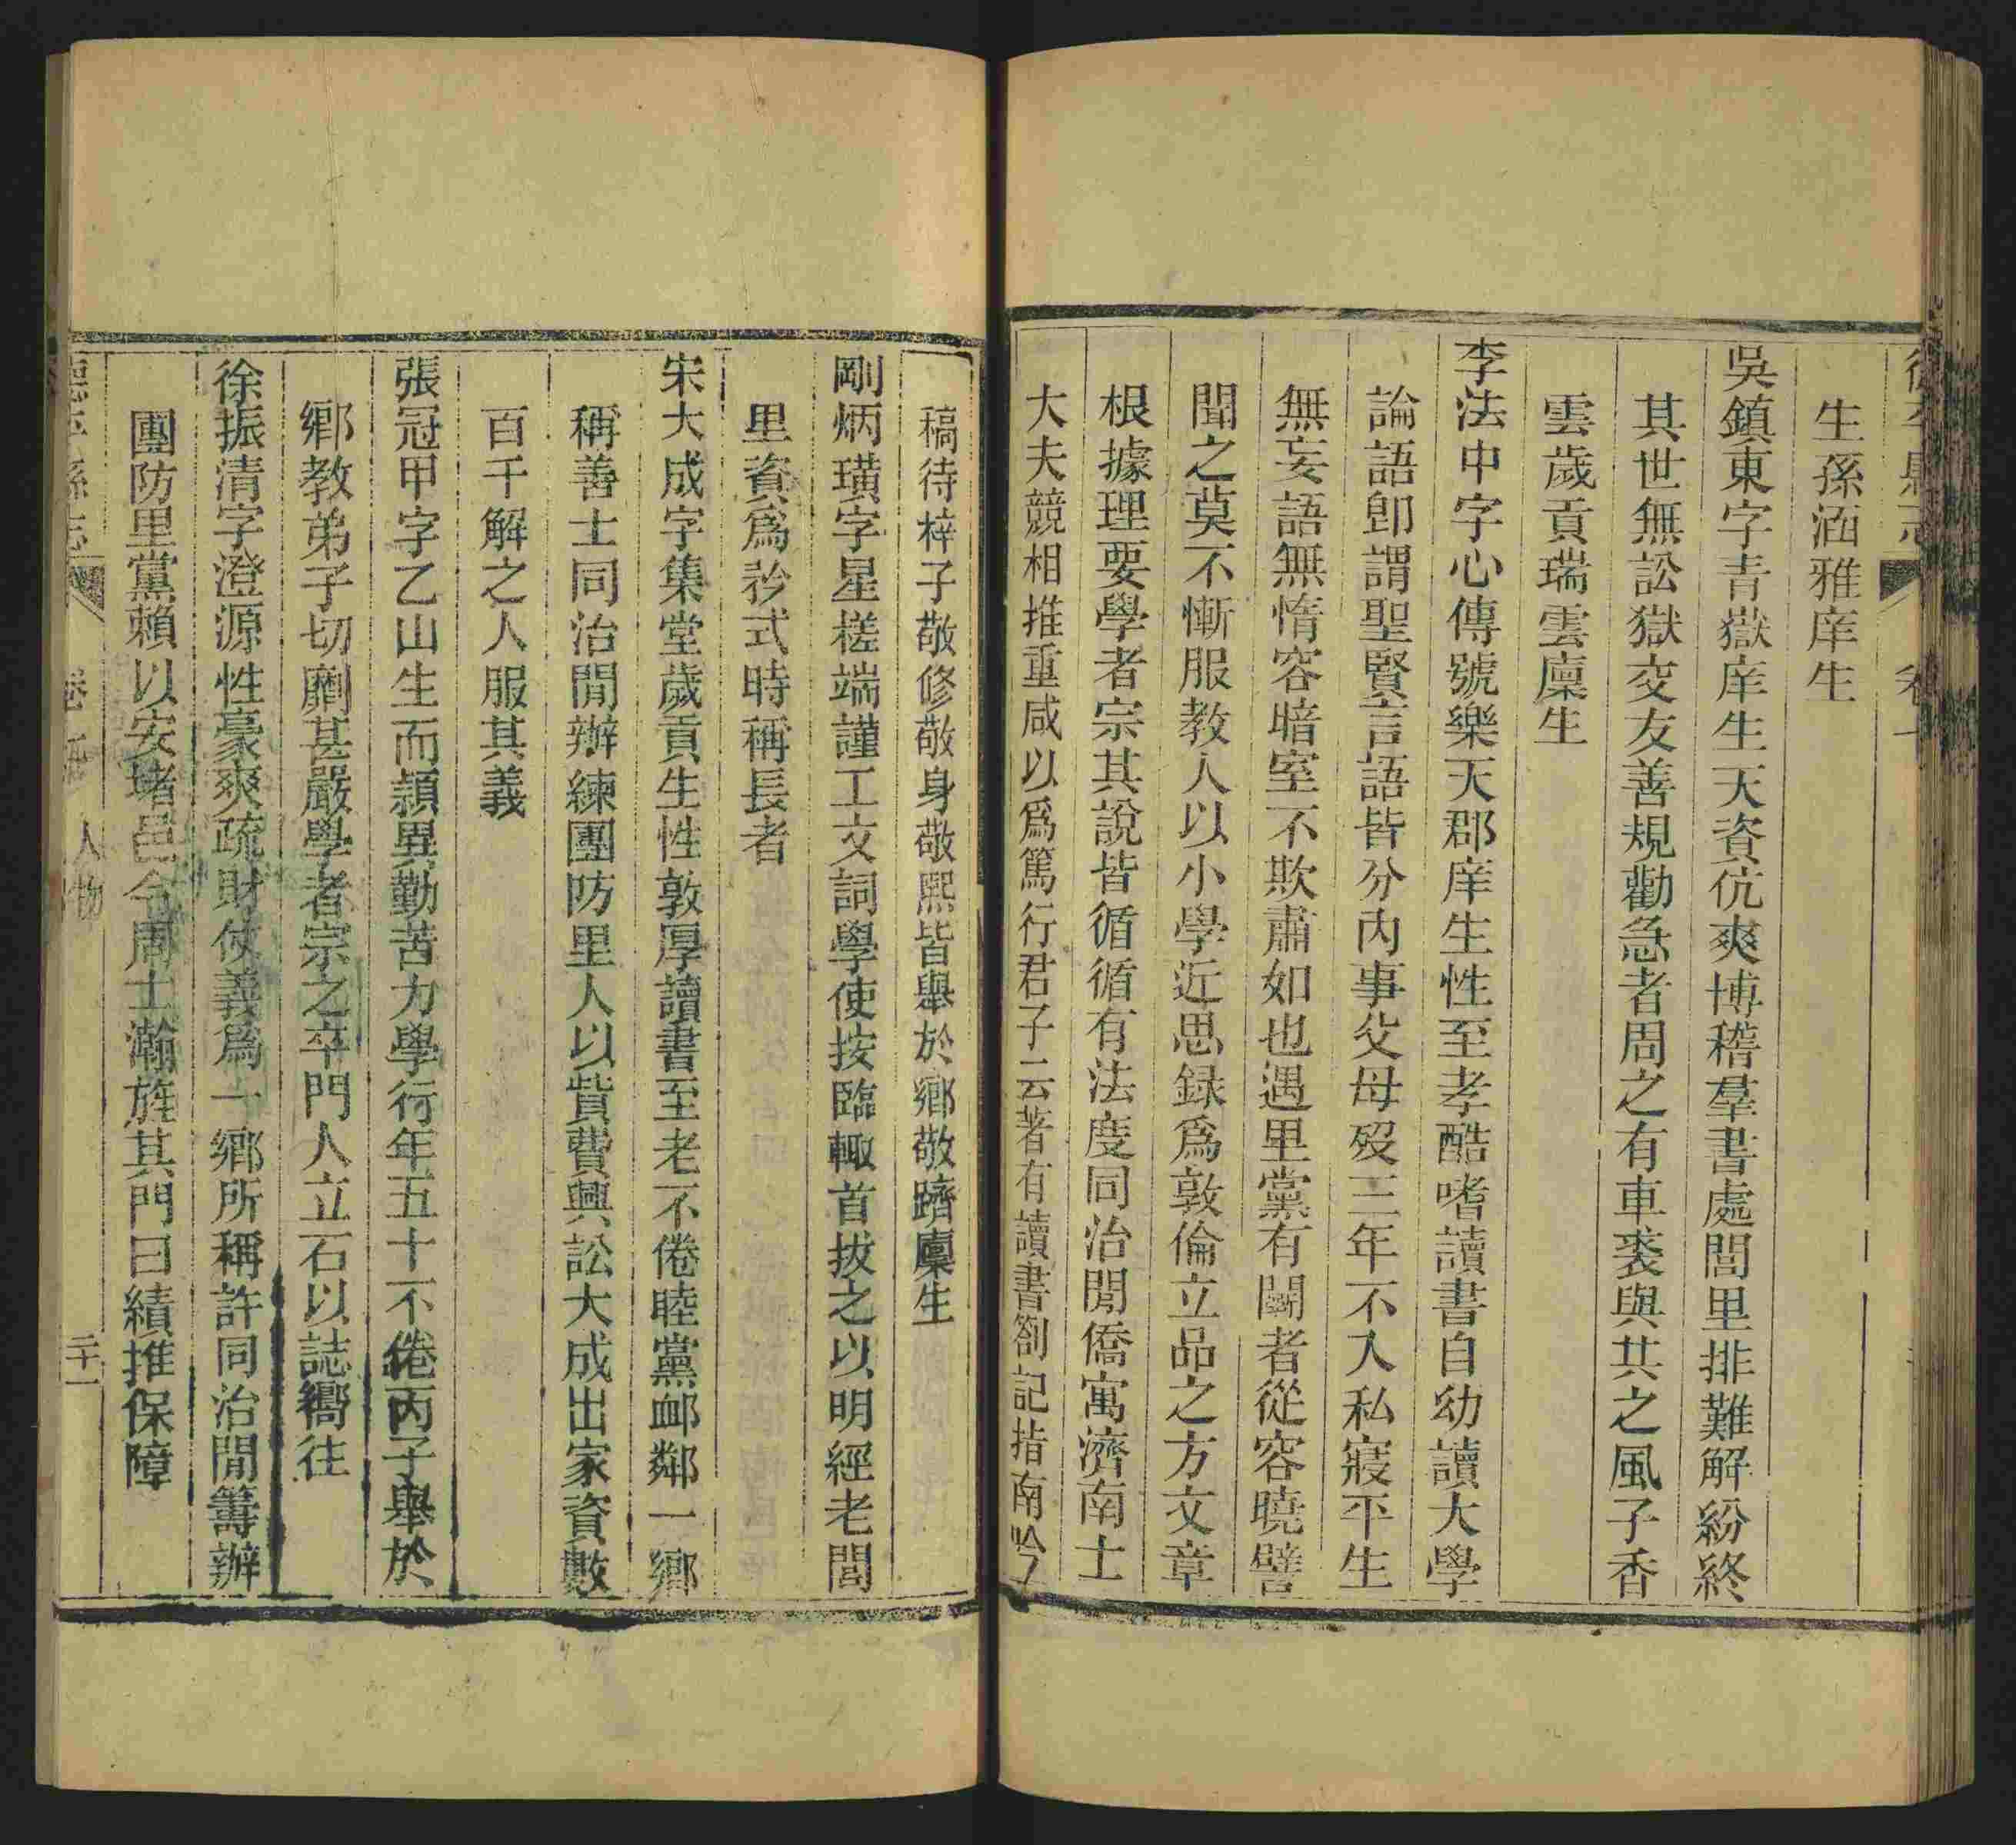 生孫酒雅庠生
吳鎮東字青嶽庠生天資伉爽博稽羣書處閭里排難解紛終
其世無訟獄交友善規勸急者周之有車裘與共之風子香
雲歲貢瑞雲廩生
李法中字心傳號樂天郡庠生性至孝酷嗜讀書自幼讀大學
論語卽謂聖賢言語皆分內事父母歿三年不入私寢平生
無妄語無惰容暗室不欺肅如也遇里黨有鬬者從容曉譬
聞之莫不慚服教人以小學近思録爲敦倫立品之方文章
根據理要學者宗其說皆循循有法度同治閒僑寓濟南士
大夫競相推重咸以爲篤行君子云著有讀書劄記指南吟
稿待梓子敬修敬身敬熙皆舉於鄉敬躋廩生
剛炳璜字星槎端謹工文詞學使按臨輙首拔之以明經老閭
里資爲矜式時稱長者
宋大成字集堂歲貢生性敦厚讀書至老不倦睦黨卹鄰一鄉
稱善士同治閒辦練團防里人以貲費興訟大成出家資數
百千解之人服其義
張冠甲字乙山生而頴異勤苦力學行年五十不倦丙子舉於
鄉教弟子切劘甚嚴學者宗之卒門人立石以誌嚮往
徐振清字澄源性豪爽疏財仗義爲一鄉所稱許同治閒籌辦
團防里黨賴以安堵邑令周士瀚旌其門曰績推保障
德平縣志 卷 人物 二十一